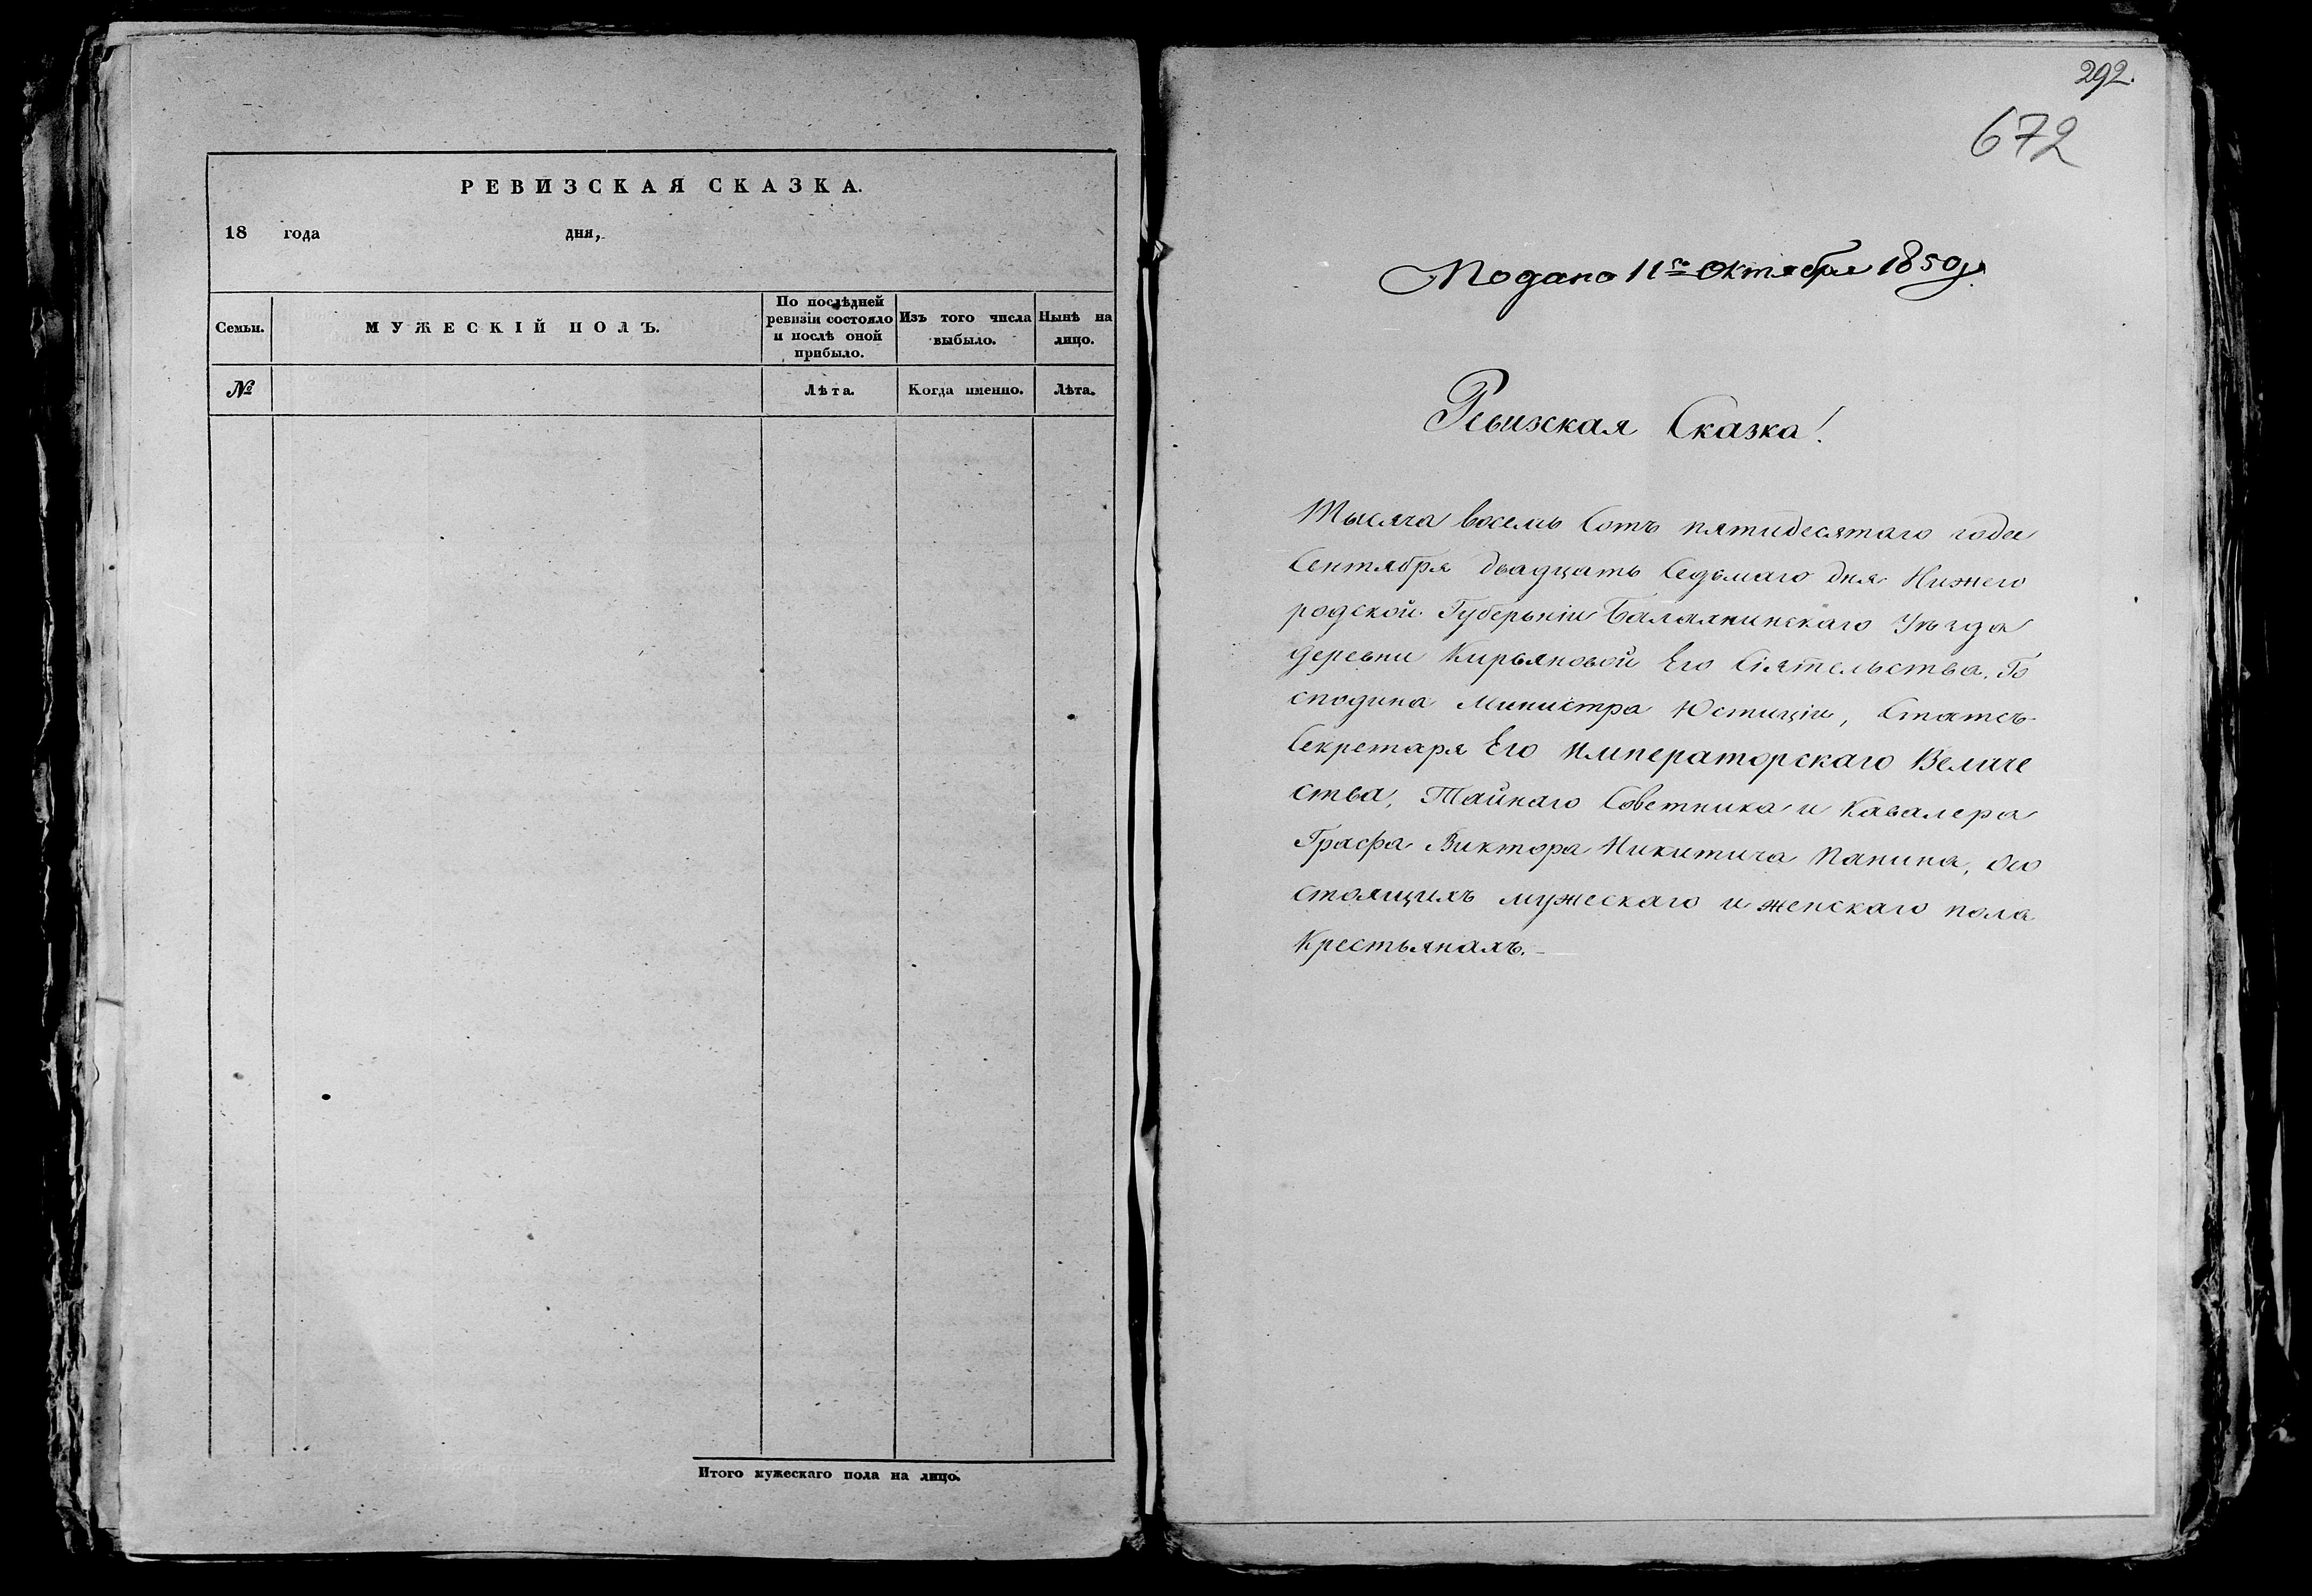 РЕВИЗСКАЯ СКАЗКА.
18 года дня,
Семьи.
МУЖЕСКІЙ ПОЛЪ.
По послѣдней
ревизіи состояло
и послѣ оной
прибыло.
Изъ того числа
выбыло.
Нынѣ на
лицо.
№
Лѣта.
Когда именно.
Лѣта.
Итого мужескаго пола на лицо.
292.
672
Подано 11го Октября 1850 г.
Ревизская Сказка!
Тысяча восемь Сотъ пятидесятаго года
Сентября двадцать Седьмаго дня Нижего
родской Губерніи Балахнинскаго Уѣзда
деревни Кирьяновой Его Сіятельства, Го
сподина Министра Юстиціи, Статсъ-
Секретаря Его Императорскаго Величе
ства, Тайнаго Советника и Кавалера
Графа Виктора Никитича Панина, о со
стоящихъ мужескаго и женскаго пола
Крестьянахъ.-